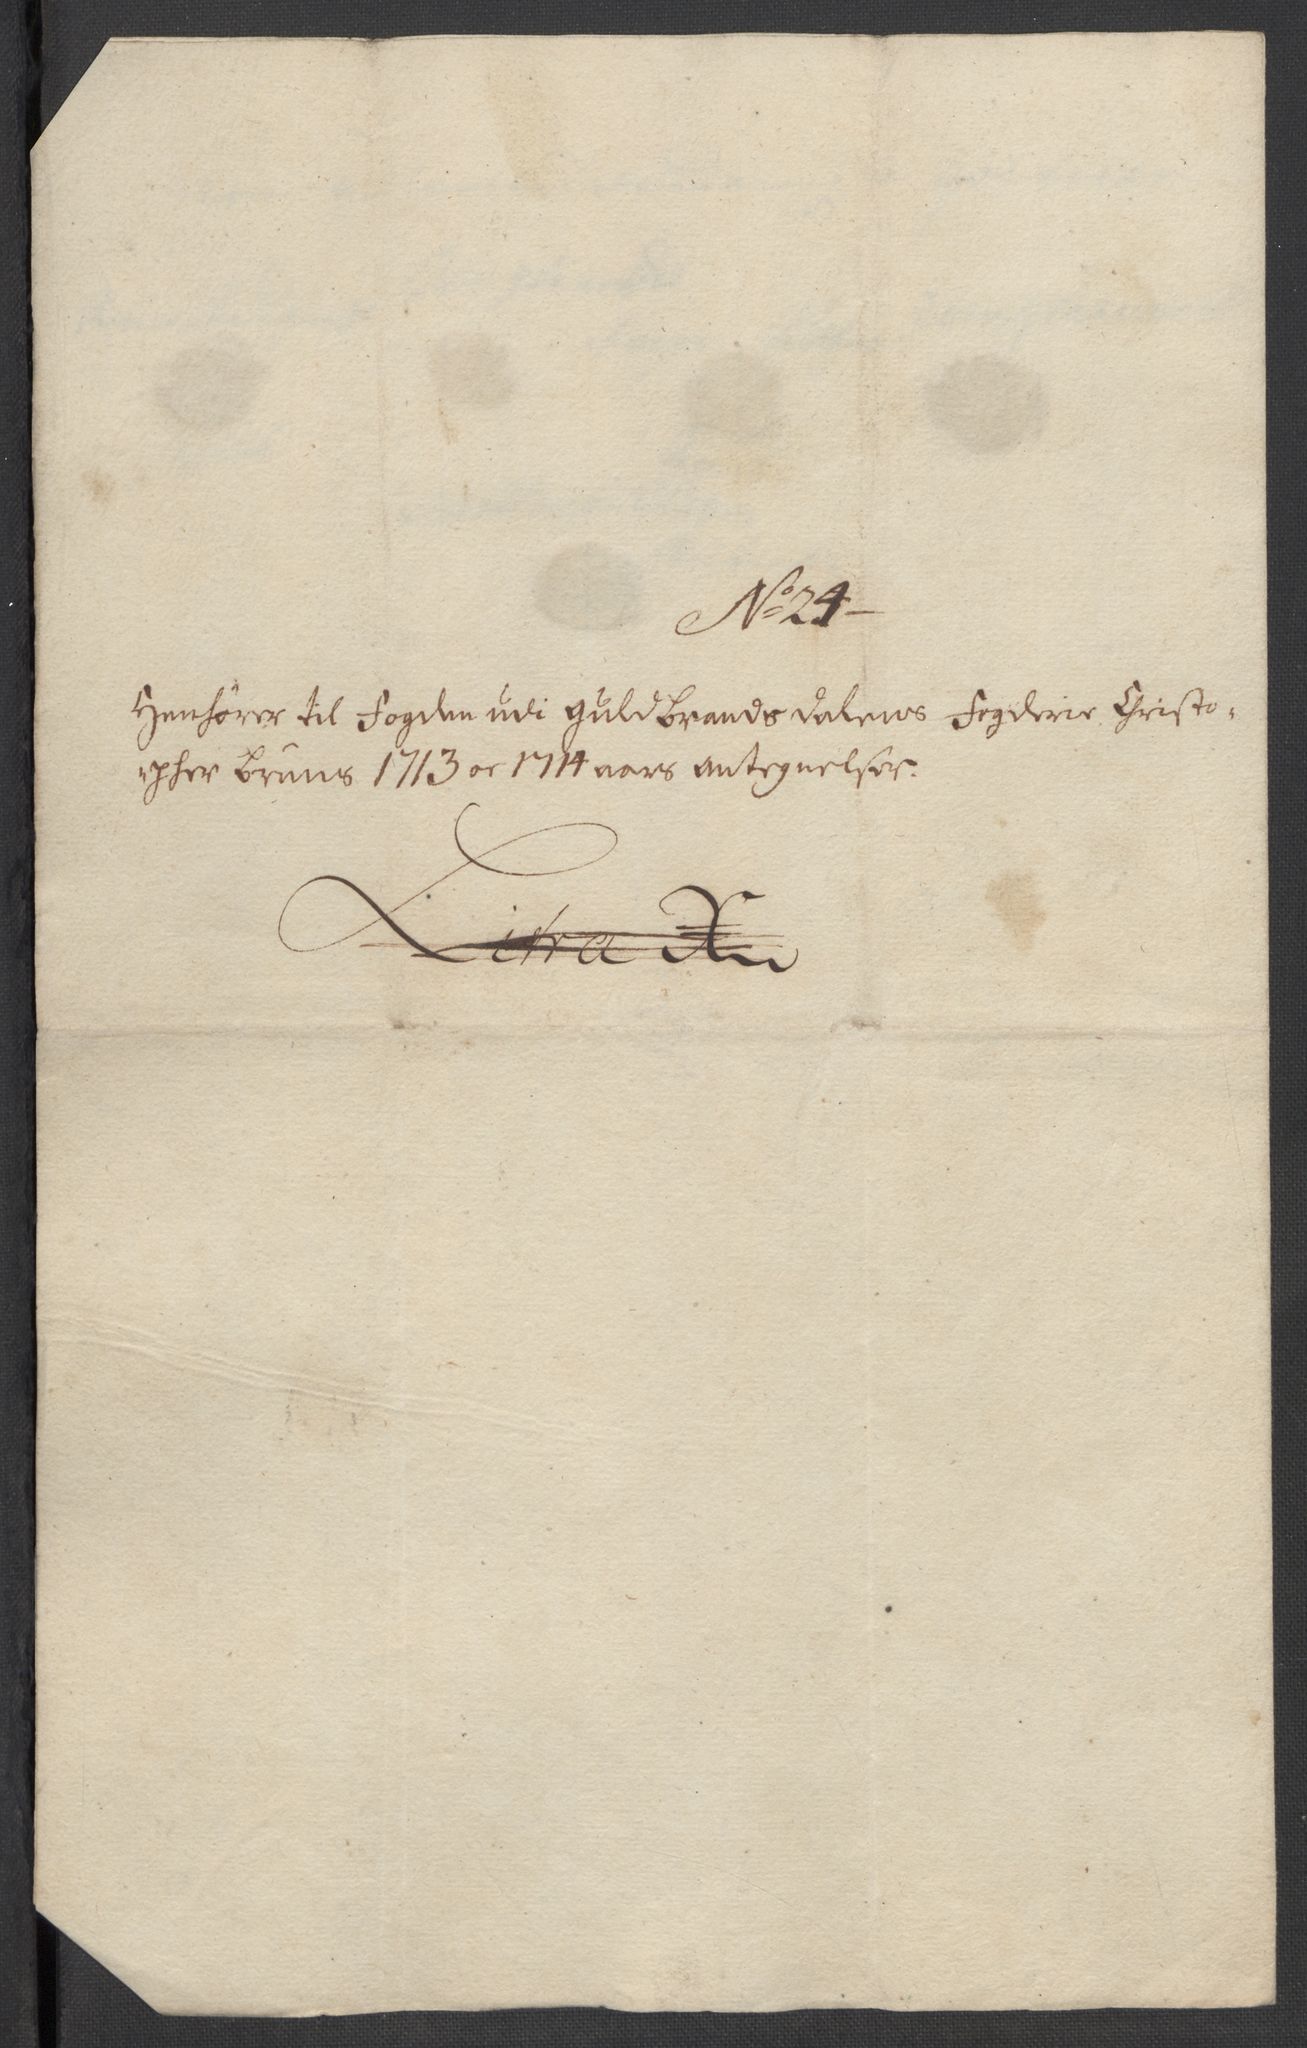 No 24
Henhörer til Fogden udi Guldbrands dalens Fogderie Christo-
pher Bruns 1713 oc 1714 aars antegnelser.
Litra